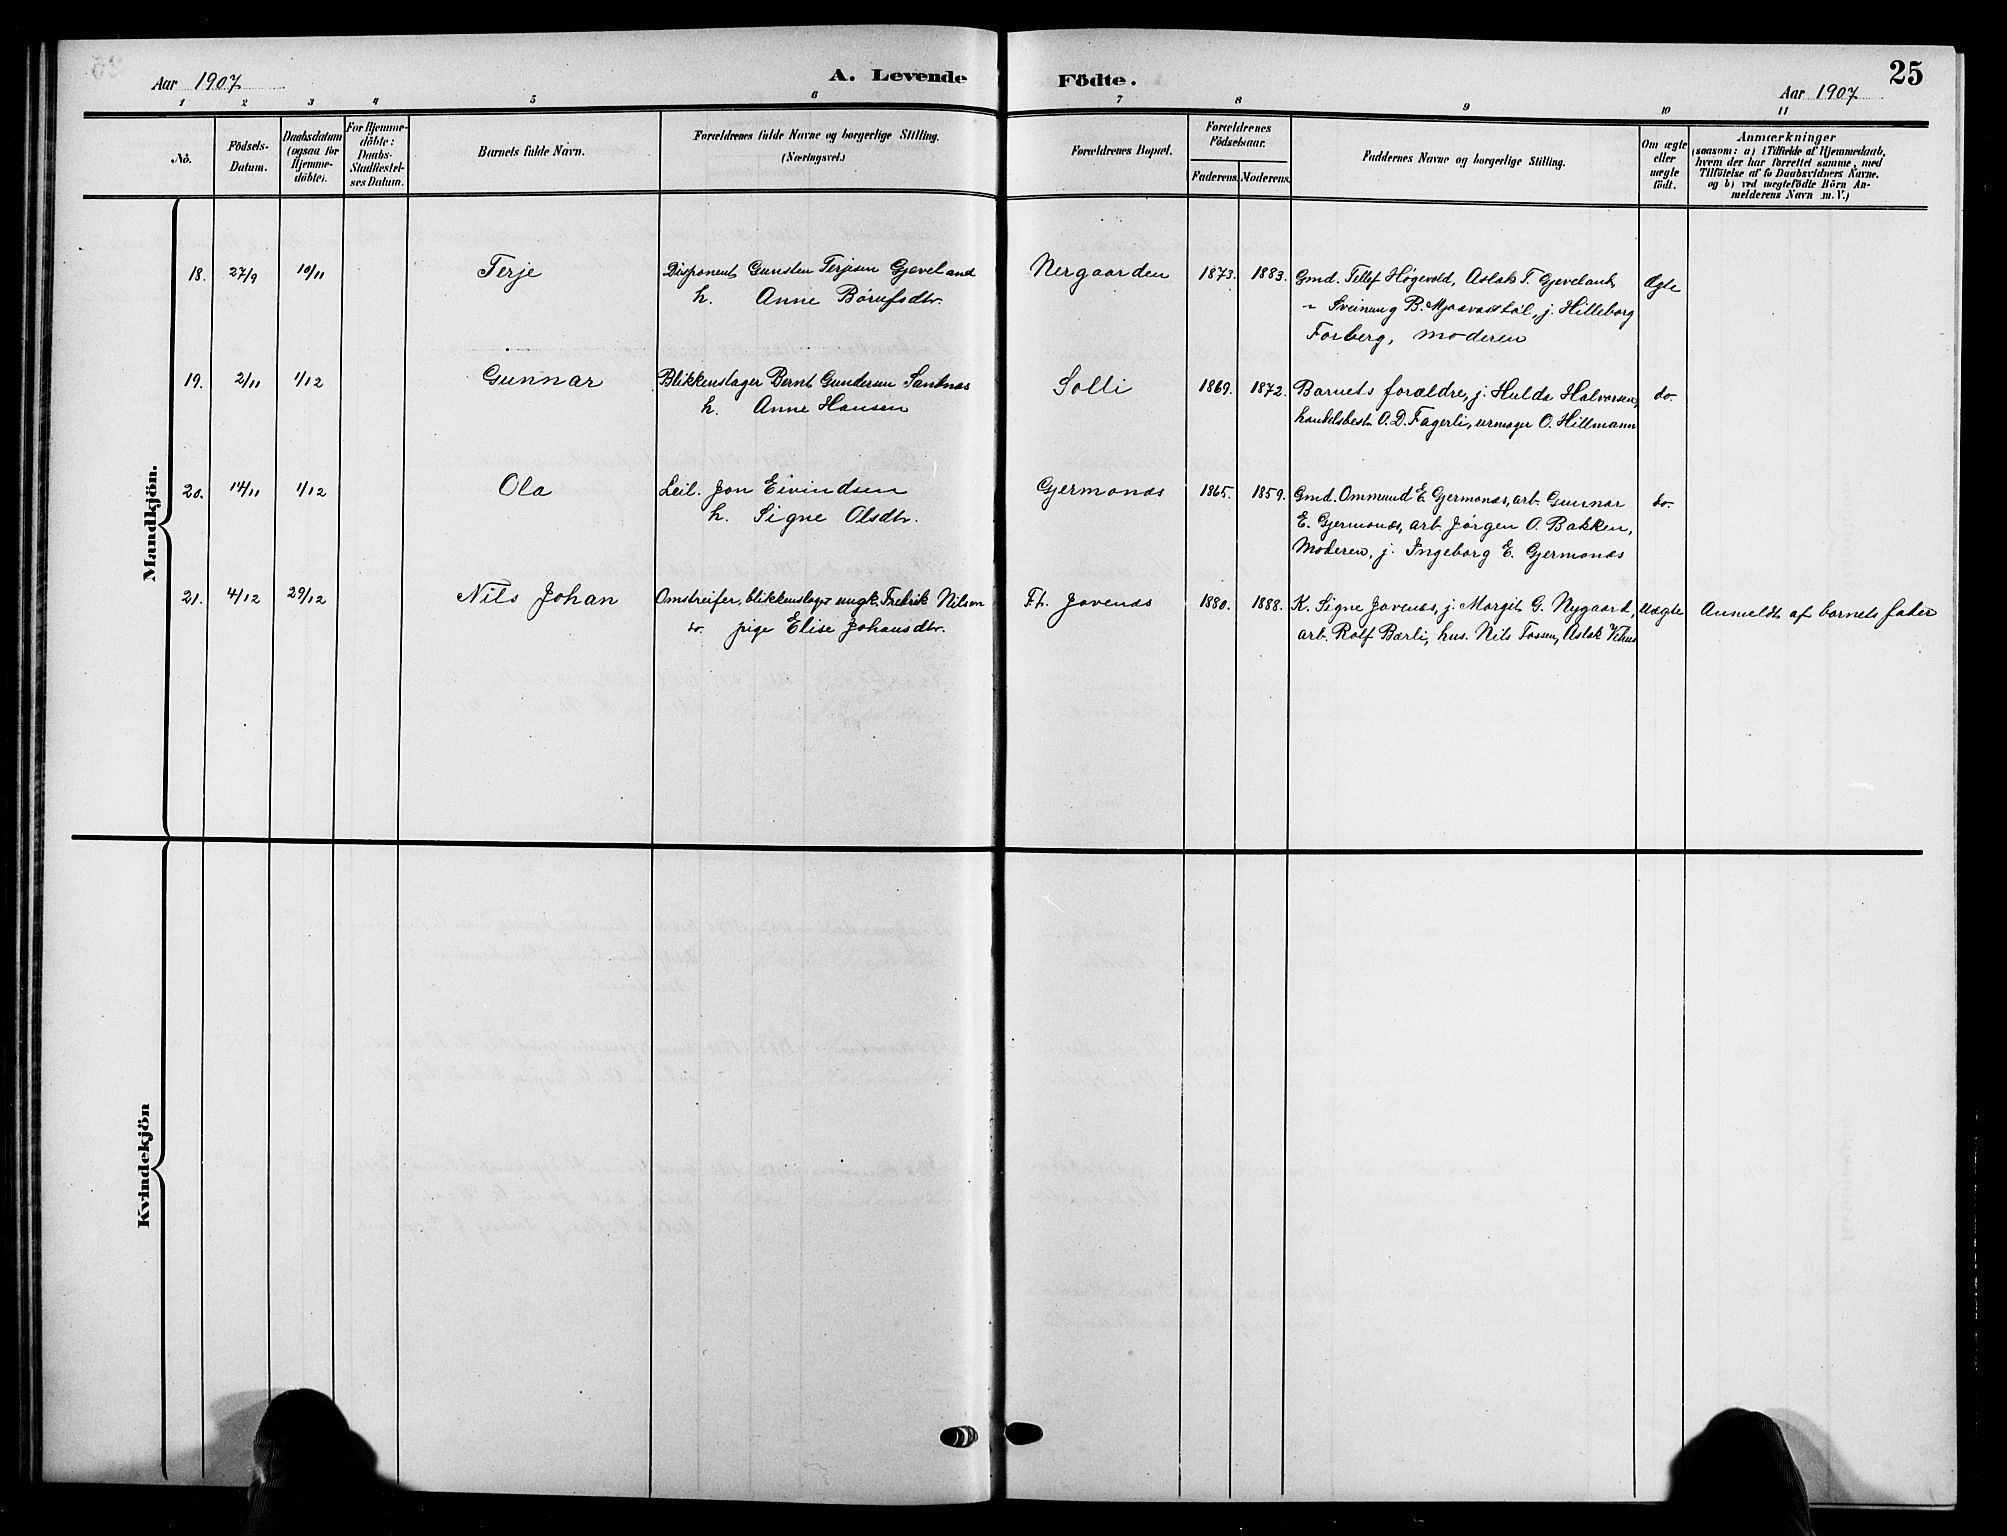 Aar 1907
A. Levende
Födte.
25
Aar 1907
1 2 3 4 5 6 7 8 9 10 11
No.
Födsels-
Datum.
Daabsdatum
(ogsaa for
Hjemme-
döbte).
For Hjemme-
döbte:
Daabs-
Stadfæstel-
ses Datum.
Barnets fulde Navn.
Forældrenes fulde Navne og borgerlige Stilling.
(Næringsvei.)
Forældrenes Bopæl.
Forældrenes
Födselsaar.
Faderens. Moderens.
Faddernes Navne og borgerlige Stilling.
Om ægte
eller
uægte
födt.
Anmærkninger
(saasom: a) i Tilfælde af Hjemmedaab,
hvem der har forrettet samme, med
Tilföielse af to Daabsvidners Navne.
og b) ved uægtefödte Börn An-
melderens Navn m. V.)
Mandkjön.
18. 27/9 10/11 Terje Disponent Gunsten Terjesen Gjeveland Nergaarden 1873. 1883. Gmd. Tellef Høgevold, Aslak T. Gjeveland, Ægte
h. Anne Børufsdtr. " Sveinung B. Mjaavastøl, j. Hilleborg
Forberg, Moderen
19. 2/11 1/12 Gunnar Blikkenslager Bernt Gundersen Santnæs Solli 1869. 1872. Barnets forældre, j. Hulda Halvorsen, do.
h. Anne Hansen handelsbest. O. D. Fagerli, urmager O. Hillmann
20. 14/11 1/12 Ola Leil. Jon Eivindsen Gjermonæs 1865. 1859. Gmd. Ommund E. Gjermonæs, arb. Gunnar do.
h. Signe Olsdtr. E. Gjermonæs, arb. Jørgen O. Bakken,
Moderen, j. Ingeborg E. Gjermonæs
21. 4/12 29/12 Nils Johan Omstreifer, blikkenslager ungk. Fredrik Nilsen Ft. Jovenæs 1880. 1888. K. Signe Jovenæs, j. Margit G. Nygaard, Uægte Anmeldt af barnets fader
do. pige Elise Johansdtr. arb. Rolf Bærli, hus. Nils Fossen, Aslak Vehus
Kvindekjön